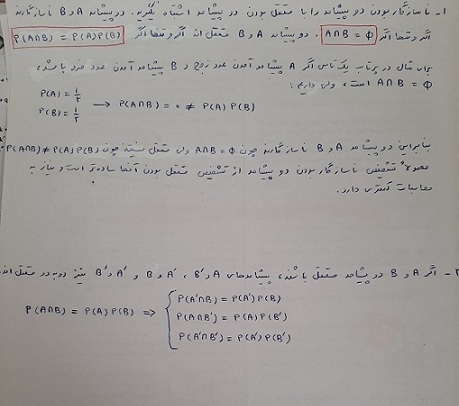 ۱- ناسازگار بودن دو پیشامد را با مستقل بودن دو پیشامد اشتباه نگیرید. دو پیشامد A و B ناسازگارند
اگر و تنها اگر A∩B = Φ . دو پیشامد A و B مستقل اند اگر و تنها اگر P(A∩B) = P(A)P(B)
برای مثال در پرتاب یک تاس اگر A پیشامد آمدن عدد زوج و B پیشامد آمدن عدد فرد باشد،
A∩B = Φ است، ولی داریم:
P(A) = ۱/۲
P(B) = ۱/۲ → P(A∩B) = ۰ ≠ P(A)P(B)
بنابراین دو پیشامد A و B ناسازگارند چون A∩B = Φ ولی مستقل نیستند چون P(A∩B) ≠ P(A)P(B)
معمولاً تشخیص ناسازگار بودن دو پیشامد از تشخیص مستقل بودن آنها ساده‌تر است و نیاز به
محاسبات کمتری دارد.
۲- اگر A و B دو پیشامد مستقل باشند، پیشامدهای A و B' ، A' و B و A' و B' نیز دوبه‌دو مستقل‌اند.
P(A∩B) = P(A)P(B) ⇒ { P(A'∩B) = P(A')P(B)
P(A∩B') = P(A)P(B')
P(A'∩B') = P(A')P(B')